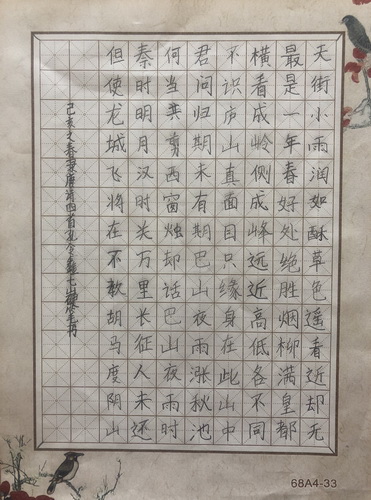 天街小雨润如酥草色遥看近却无
最是一年春好处绝胜烟柳满皇都
横看成岭侧成峰远近高低各不同
不识庐山真面目只缘身在此山中
君问归期未有期巴山夜雨涨秋池
何当共剪西窗烛却话巴山夜雨时
秦时明月汉时关万里长征人未还
但使龙城飞将在不教胡马度阴山
己亥之春录唐诗四首
68A4-33